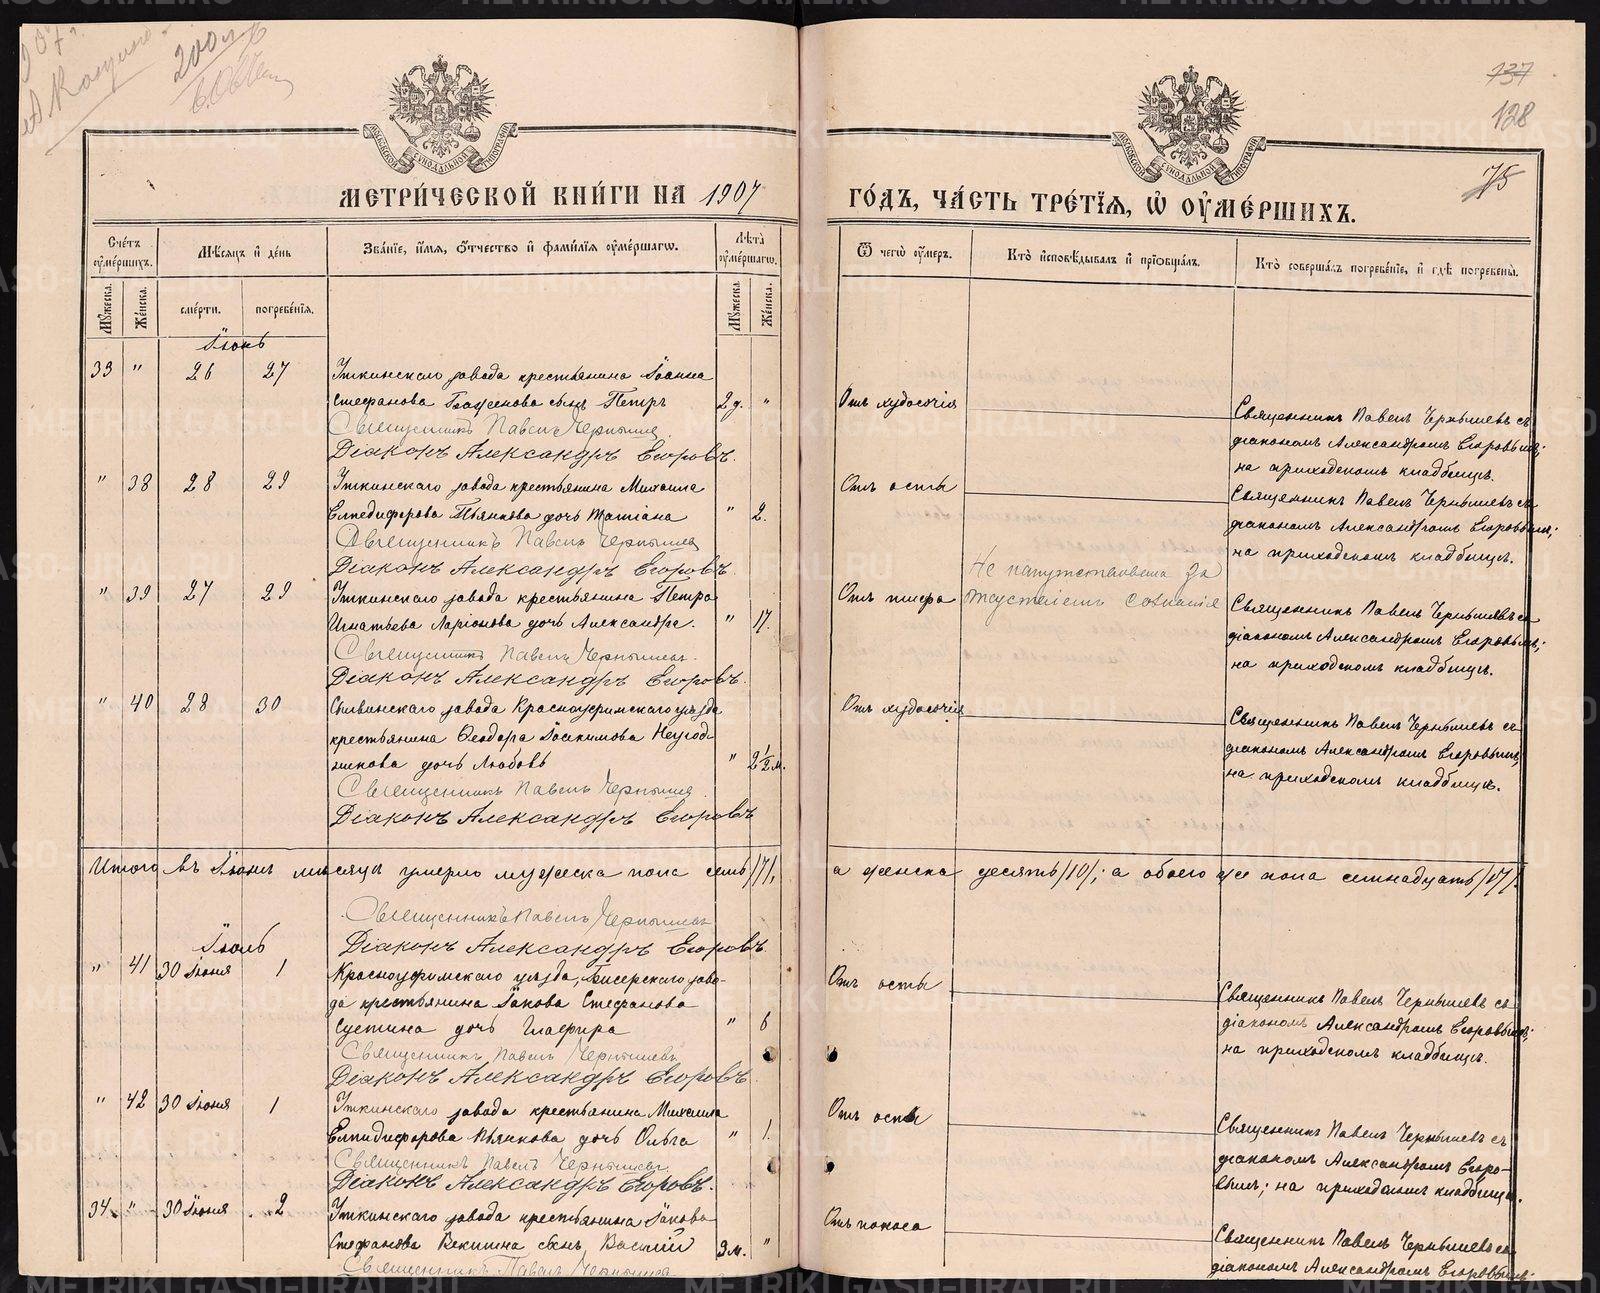 1907 г.
200 л
137
128
75
МЕТРИ́ЧЕСКОЙ КНИ́ГИ НА 1907
ГО́ДЪ, ЧА́СТЬ ТРЕ́ТЇѦ, Ѡ҆ ОУ҆МЕ́РШИХЪ.
Сче́тъ оу҆ме́ршихъ.
Мѣ́сѧцъ и҆ де́нь
Зва́нїе, и҆́мѧ, ѻ҆́тчество и҆ фами́лїѧ оу҆ме́ршагѡ.
Лѣ́та оу҆ме́ршагѡ.
Ѿ чегѡ̀ оу҆́меръ.
Кто̀ и҆сповѣ́дывалъ и҆ прїѻбща́лъ.
Кто̀ соверша́лъ погребе́нїе, и҆ гдѣ̀ погребены̀.
Мꙋ́жеска.
Же́нска.
сме́рти.
погребе́нїѧ.
Мꙋ́жеска.
Же́нска.
Іюнь
33 " 26 27 Уткинскаго завода крестьянина Іоанна
Стефанова сынъ Петръ 2 г. " Отъ худосочія
Священникъ Павелъ Чернышев
Діаконъ Александръ Егоровъ.
Священникъ Павелъ Чернышевъ съ
діакономъ Александромъ Егоровымъ;
на приходскомъ кладбищѣ.
" 38 28 29 Уткинскаго завода крестьянина Михаила
Елпидифорова Пьянкова дочь Татіана " 2. Отъ оспы
Священникъ Павелъ Чернышев
Діаконъ Александръ Егоровъ.
Священникъ Павелъ Чернышевъ съ
діакономъ Александромъ Егоровымъ;
на приходскомъ кладбищѣ.
" 39 27 29 Уткинскаго завода крестьянина Петра
Игнатьева Ларіонова дочь Александра. " 17. Отъ тифа
Священникъ Павелъ Чернышев.
Діаконъ Александръ Егоровъ.
Не напутствована за
сознанія
Священникъ Павелъ Чернышевъ съ
діакономъ Александромъ Егоровымъ;
на приходскомъ кладбищѣ.
" 40 28 30 Сылвинскаго завода Красноуфимскаго уѣзда
крестьянина Ѳеодора Іоакимова Неугод-
никова дочь Любовь " 2 1/2 м. Отъ худосочія
Священникъ Павелъ Чернышев.
Діаконъ Александръ Егоровъ
Священникъ Павелъ Чернышевъ съ
діакономъ Александромъ Егоровымъ;
на приходскомъ кладбищѣ.
Итого въ Іюнѣ мѣсяцѣ умерло мужеска пола семь /7/,
а женска десять /10/; а обоего же пола семнадцать /17/.
Священникъ Павелъ Чернышевъ
Діаконъ Александръ Егоровъ.
Іюль
" 41 30 Іюня 1 Красноуфимскаго уѣзда, Бисерскаго заво-
да крестьянина Іакова Стефанова
Сустина дочь Глафира " 6 Отъ оспы
Священникъ Павелъ Чернышевъ
Діаконъ Александръ Егоровъ.
Священникъ Павелъ Чернышевъ съ
діакономъ Александромъ Егоровымъ;
на приходскомъ кладбищѣ.
" 42 30 Іюня 1 Уткинскаго завода крестьянина Михаила
Елпидифорова Пьянкова дочь Ольга " 1. Отъ оспы
Священникъ Павелъ Чернышевъ
Діаконъ Александръ Егоровъ.
Священникъ Павелъ Чернышевъ съ
діакономъ Александромъ Егоро-
вымъ; на приходскомъ кладбищѣ.
34. " 30 Іюня 2 Уткинскаго завода крестьянина Іакова
Стефанова сынъ Василій 3 м. " Отъ поноса
Священникъ Павелъ Чернышев
Священникъ Павелъ Чернышевъ съ
діакономъ Александромъ Егоровымъ;
METRIKI.GASO-URAL.RU